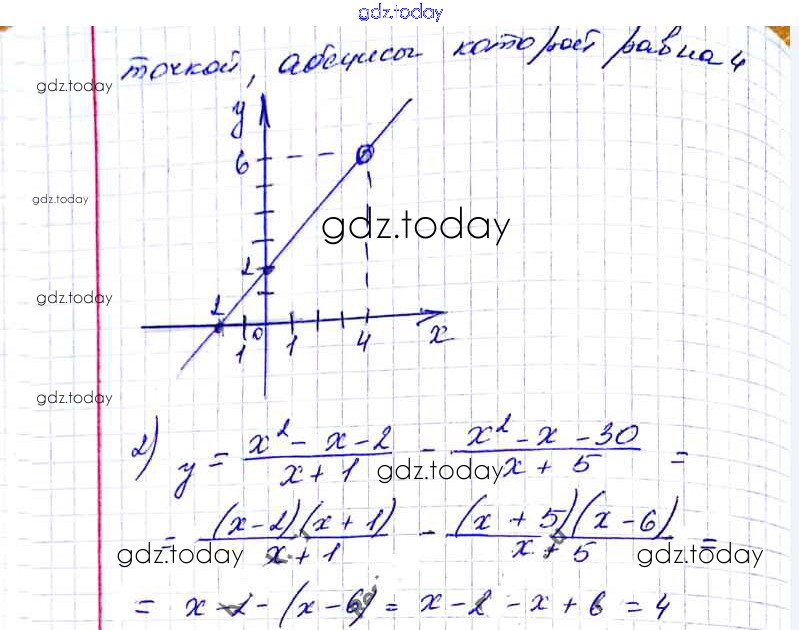 gdz.today
точкой, абсцисса которой равна 4
gdz.today
y
6
gdz.today
gdz.today
2
gdz.today
2
1 0 1 4 x
gdz.today
2) y = (x² - x - 2)/(x + 1) - (x² - x - 30)/(x + 5) =
gdz.today
= ((x - 2)(x + 1))/(x + 1) - ((x + 5)(x - 6))/(x + 5) =
gdz.today gdz.today
= x - 2 - (x - 6) = x - 2 - x + 6 = 4